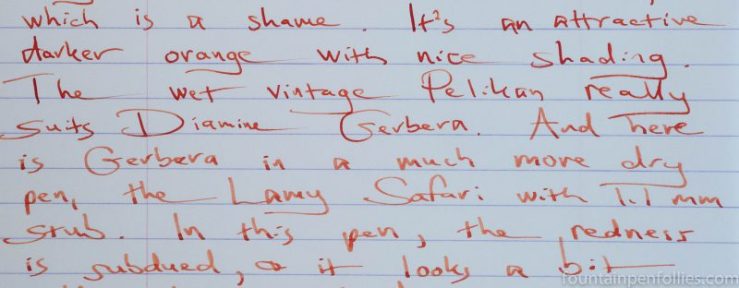 which is a shame. It's an attractive
darker orange with nice shading.
The wet vintage Pelikan really
suits Diamine Gerbera. And here
is Gerbera in a much more dry
pen, the Lamy Safari with 1.1 mm
stub. In this pen, the redness
is subdued, it looks a bit
fountainpenfollies.com